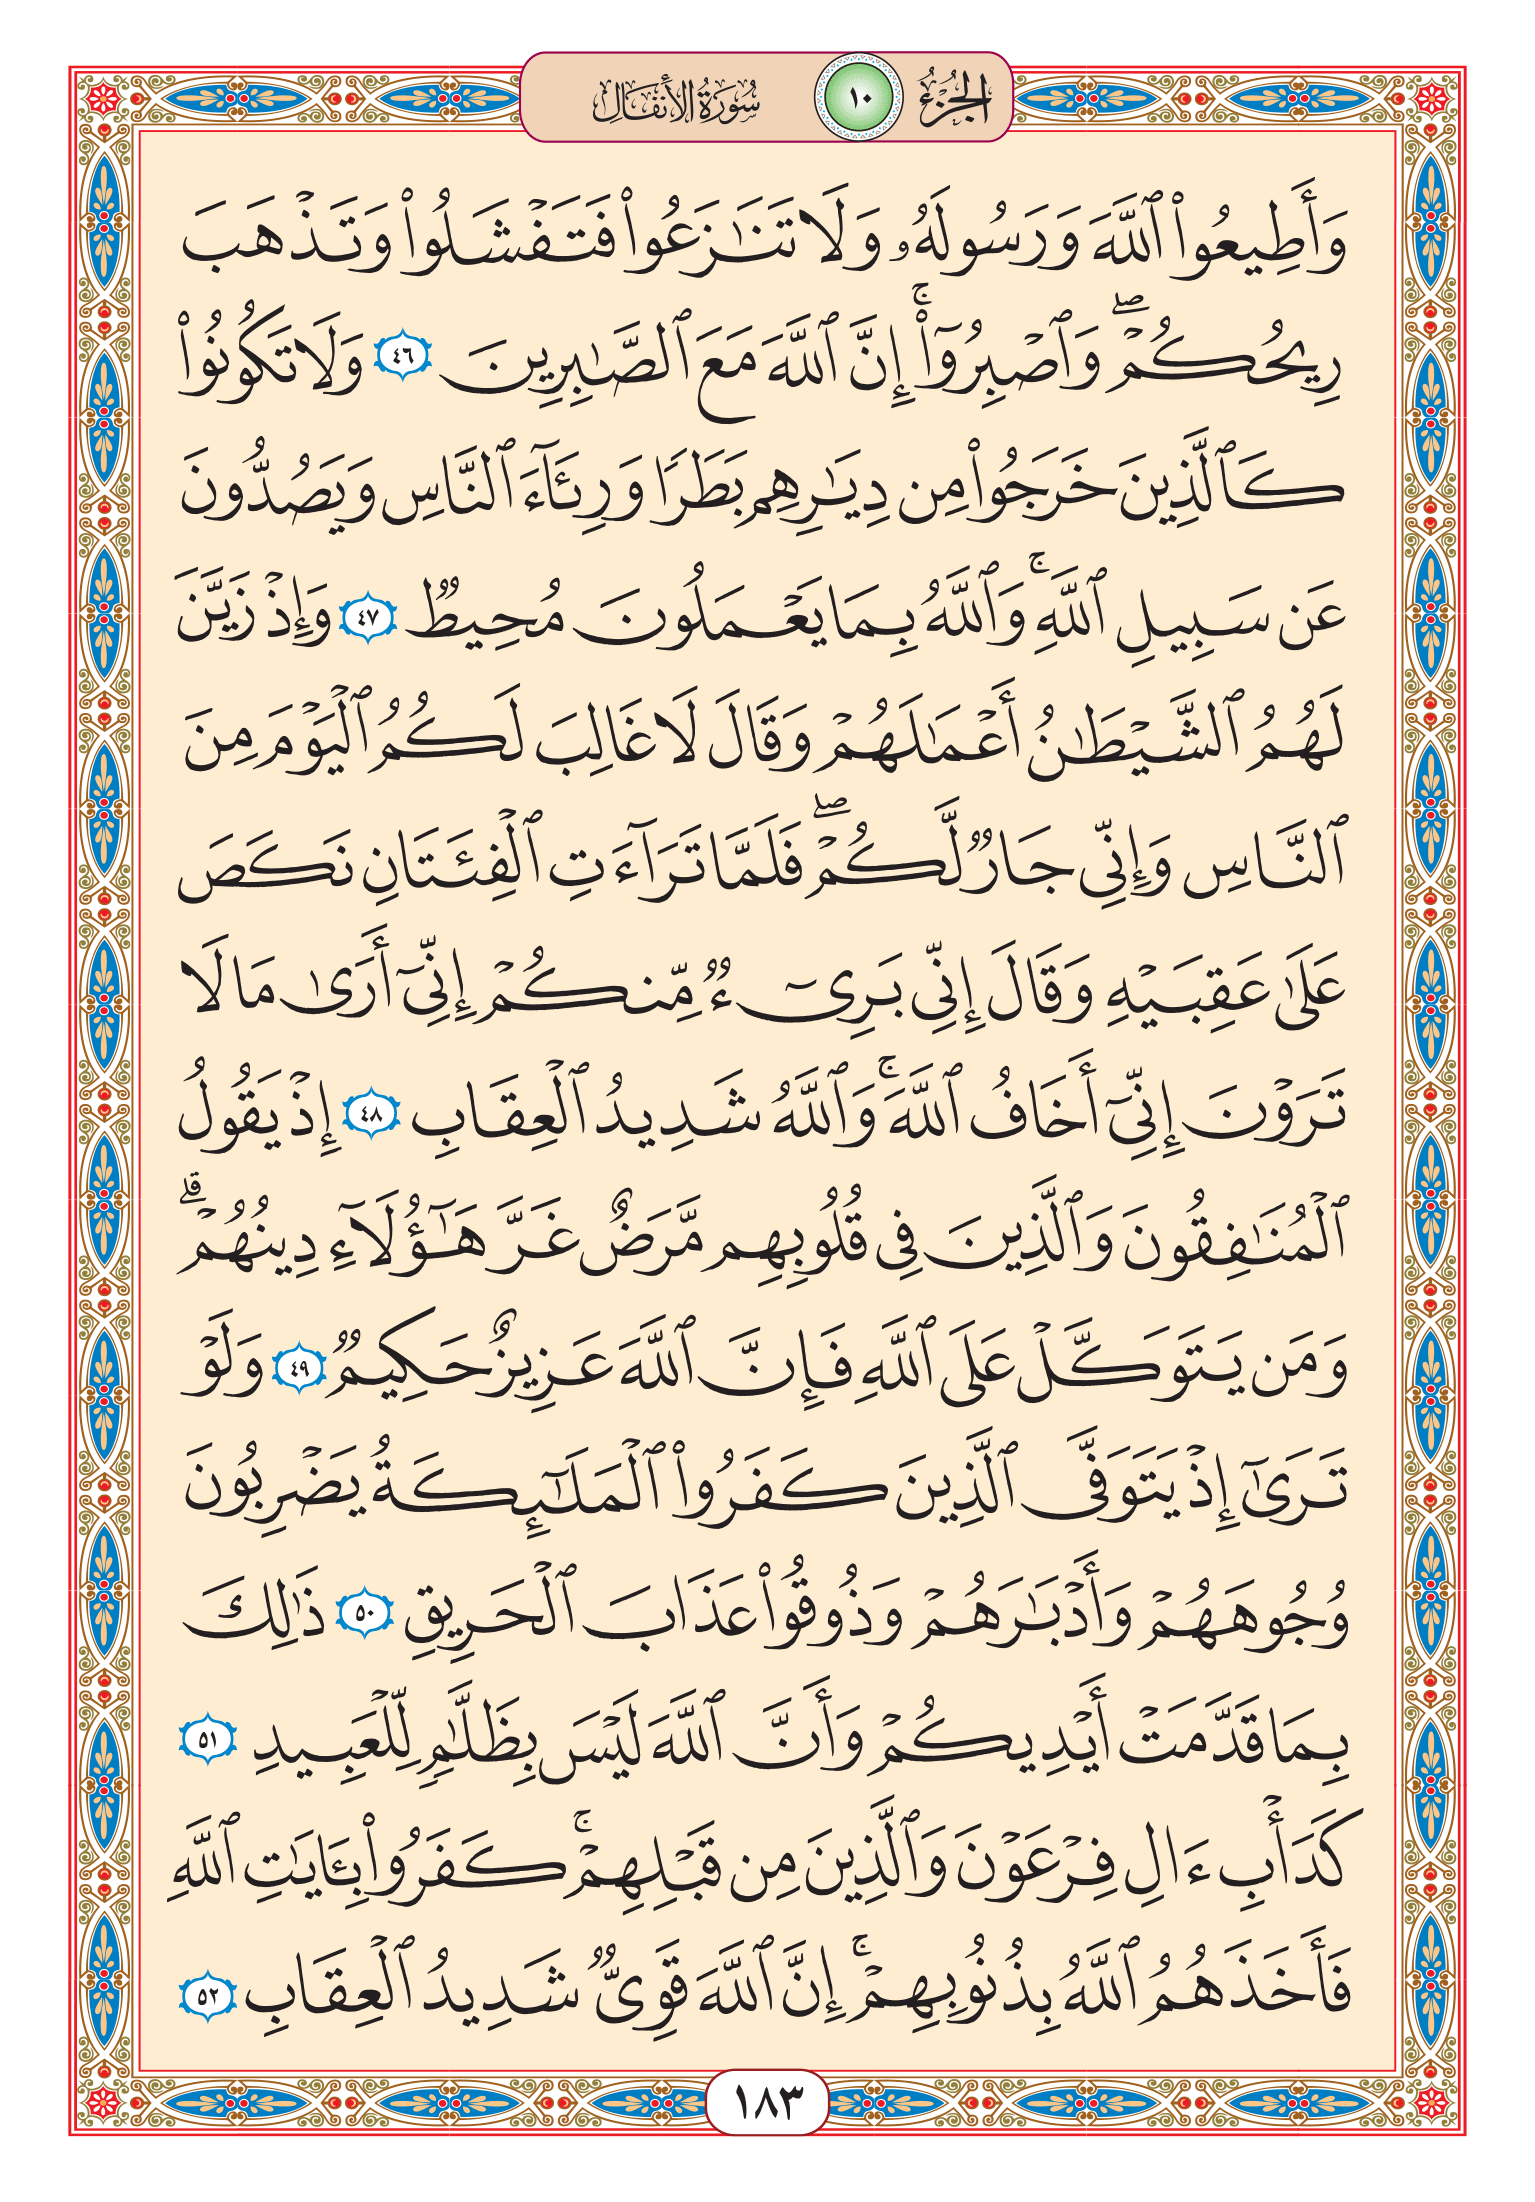 الجزء ١٠ سورة الأنفال
وَأَطِيعُوا۟ ٱللَّهَ وَرَسُولَهُۥ وَلَا تَنَـٰزَعُوا۟ فَتَفْشَلُوا۟ وَتَذْهَبَ
رِيحُكُمْ ۖ وَٱصْبِرُوٓا۟ ۚ إِنَّ ٱللَّهَ مَعَ ٱلصَّـٰبِرِينَ ٤٦ وَلَا تَكُونُوا۟
كَٱلَّذِينَ خَرَجُوا۟ مِن دِيَـٰرِهِم بَطَرًا وَرِئَآءَ ٱلنَّاسِ وَيَصُدُّونَ
عَن سَبِيلِ ٱللَّهِ ۚ وَٱللَّهُ بِمَا يَعْمَلُونَ مُحِيطٌ ٤٧ وَإِذْ زَيَّنَ
لَهُمُ ٱلشَّيْطَـٰنُ أَعْمَـٰلَهُمْ وَقَالَ لَا غَالِبَ لَكُمُ ٱلْيَوْمَ مِنَ
ٱلنَّاسِ وَإِنِّى جَارٌ لَّكُمْ ۖ فَلَمَّا تَرَآءَتِ ٱلْفِئَتَانِ نَكَصَ
عَلَىٰ عَقِبَيْهِ وَقَالَ إِنِّى بَرِىٓءٌ مِّنكُمْ إِنِّىٓ أَرَىٰ مَا لَا
تَرَوْنَ إِنِّىٓ أَخَافُ ٱللَّهَ ۚ وَٱللَّهُ شَدِيدُ ٱلْعِقَابِ ٤٨ إِذْ يَقُولُ
ٱلْمُنَـٰفِقُونَ وَٱلَّذِينَ فِى قُلُوبِهِم مَّرَضٌ غَرَّ هَـٰٓؤُلَآءِ دِينُهُمْ ۗ
وَمَن يَتَوَكَّلْ عَلَى ٱللَّهِ فَإِنَّ ٱللَّهَ عَزِيزٌ حَكِيمٌ ٤٩ وَلَوْ
تَرَىٰٓ إِذْ يَتَوَفَّى ٱلَّذِينَ كَفَرُوا۟ ٱلْمَلَـٰٓئِكَةُ يَضْرِبُونَ
وُجُوهَهُمْ وَأَدْبَـٰرَهُمْ وَذُوقُوا۟ عَذَابَ ٱلْحَرِيقِ ٥٠ ذَٰلِكَ
بِمَا قَدَّمَتْ أَيْدِيكُمْ وَأَنَّ ٱللَّهَ لَيْسَ بِظَلَّـٰمٍ لِّلْعَبِيدِ ٥١
كَدَأْبِ ءَالِ فِرْعَوْنَ وَٱلَّذِينَ مِن قَبْلِهِمْ ۚ كَفَرُوا۟ بِـَٔايَـٰتِ ٱللَّهِ
فَأَخَذَهُمُ ٱللَّهُ بِذُنُوبِهِمْ ۚ إِنَّ ٱللَّهَ قَوِىٌّ شَدِيدُ ٱلْعِقَابِ ٥٢
١٨٣